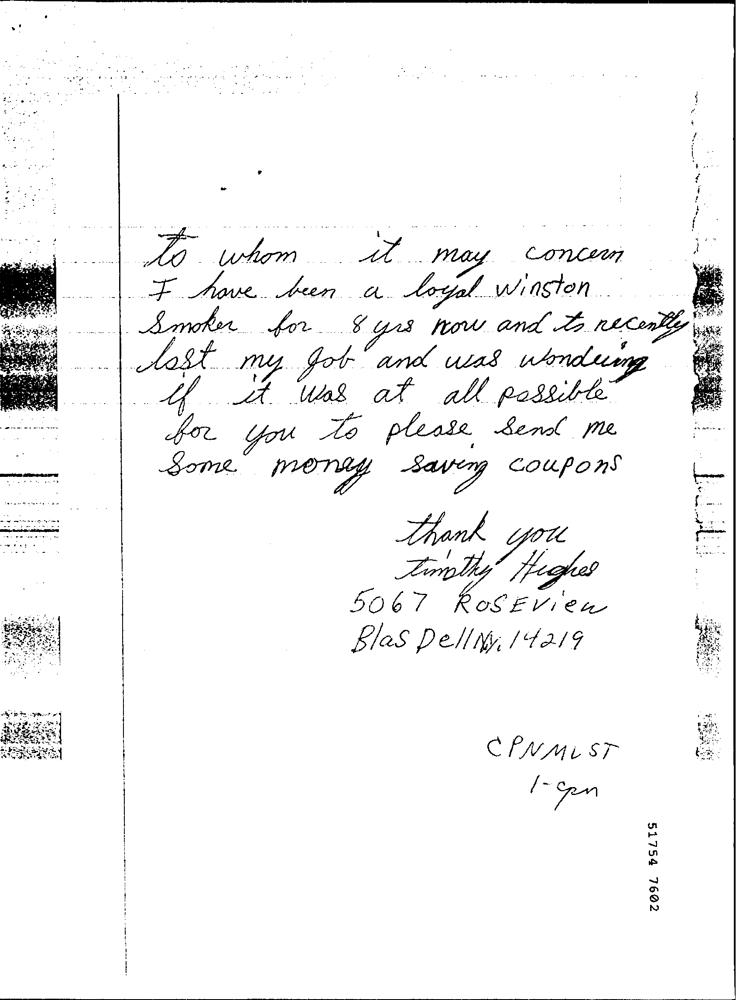 to whom it may concern
I have been a loyal winston
Smoker for 8 yrs now and to recently
lost my job and was wondering
if it was at all possible
for you to please send me
Some money saving coupons
thank you
timothy Hughes
5067 ROSEView
Blas Dell Ny. 14219
CPNMLST
1-cpn
51754 7602